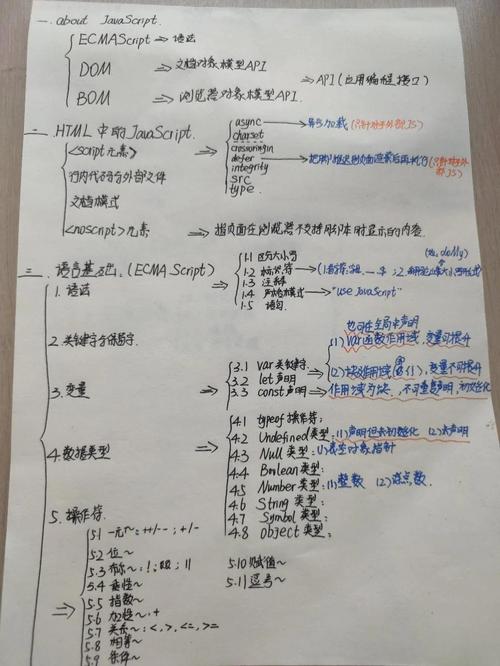 一. about JavaScript.
ECMAScript ⇒ 语法
DOM ⇒ 文档对象模型API
⇒ API (应用编程接口)
BOM ⇒ 浏览器对象模型API.
二. HTML中的JavaScript.
<script元素> ⇒
async ⇒ 异步加载 (只针对于外部JS)
charset
crossorigin
defer → 把脚本推迟到页面渲染后再执行 (只针对于外部JS)
integrity
src
type.
行内代码与外部文件
文档模式
<noscript>元素 ⇒ 指页面在浏览器不支持脚本时显示的内容.
三. 语言基础. (ECMAScript)
1. 语法 ⇒
1.1 区分大小写
1.2 标识符
1.3 注释
1.4 严格模式 → "use JavaScript"
1.5 语句.
2. 关键字与保留字.
3. 变量 ⇒
也可在全局中声明
3.1 var关键字. (1) Var函数作用域, 变量可提升
3.2 let声明 (2) 块级作用域 {}, 变量不可提升
3.3 const声明 → 作用域为块, 不可重复声明, 初始化
4. 数据类型 ⇒
4.1 typeof操作符:
4.2 Undefined类型: (1) 声明但未初始化 (2) 未声明
4.3 Null类型: (1) 表空对象指针
4.4 Boolean类型:
4.5 Number类型: (1) 整数 (2) 浮点数.
4.6 String类型:
4.7 Symbol类型:
4.8 object类型:
5. 操作符.
⇒
5.1 一元~: ++/-- ; +/-
5.2 位~
5.3 布尔~: ! ; && ; ||
5.4 乘性~
5.5 指数~
5.6 加性~: +
5.7 关系~: <, >, <=, >=
5.8 相等~
5.9 条件~
5.10 赋值~
5.11 逗号~